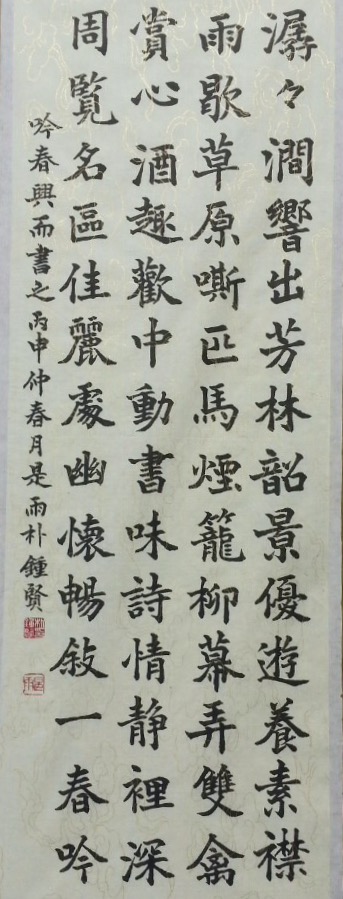 潺々澗響出芳林韶景優遊養素襟
雨歇草原嘶匹馬煙籠柳幕弄雙禽
賞心酒趣歡中動書味詩情静裡深
周覧名區佳麗處幽懷暢敍一春吟
吟春興而書之丙申仲春月是雨朴鍾賢